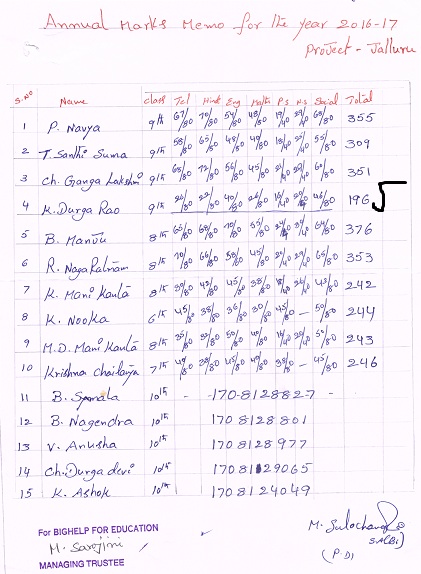 Annual Marks Memo for the year 2016-17
Project - Jalluru
S.NO Name class Tel Hindi Eng Maths P.S N.S Social Total
1 P. Navya 9th 67/80 70/80 54/80 48/80 29/40 68/80 355
2 T. Sandhi Suma 9th 58/80 65/80 48/80 55/80 309
3 Ch. Ganga Lakshmi 9th 68/80 72/80 56/80 45/80 60/80 351
4 K. Durga Rao 9th 40/80 26/80 46/80 196
5 B. Manju 8th 65/80 68/80 70/80 55/80 64/80 376
6 R. Naga Ratnam 8th 70/80 66/80 58/80 45/80 65/80 353
7 K. Mani Kanta 8th 45/80 38/80 242
8 K. Nooka 6th 45/80 38/80 36/80 30/80 45/80 - 50/80 244
9 M.D. Mani Kanta 8th 35/80 50/80 40/80 50/80 243
10 Krishna chaitanya 7th 38/80 45/80 - 45/80 246
11 B. 10th - - 1708128827 -
12 B. Nagendra 10th 1708128801
13 V. Anusha 10th 1708128977
14 Ch. Durga devi 10th 1708129065
15 K. Ashok 10th 1708124049
For BIGHELP FOR EDUCATION
M. Sarojini
MANAGING TRUSTEE
M. Sulochana
(P.D)